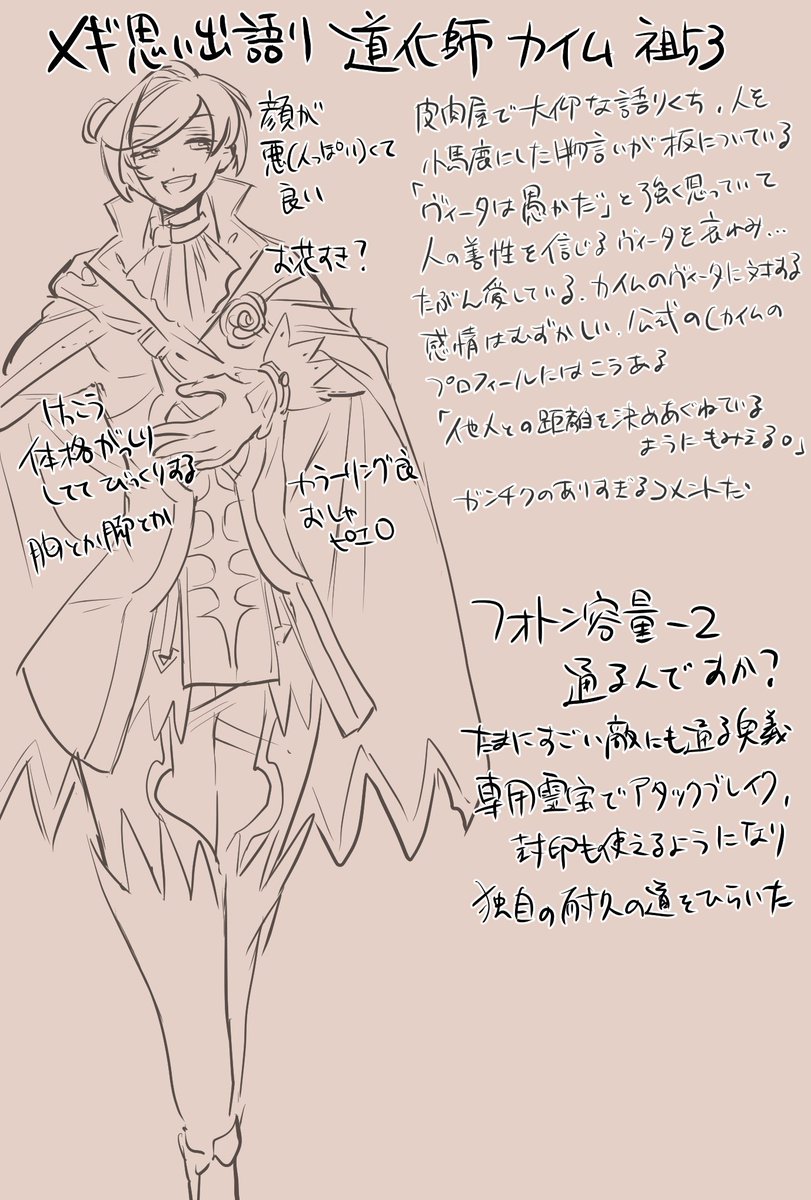 メギ思い出語り 道化師 カイム 祖53
顔が
悪(人っぽい)くて
良い
お花すき?
皮肉屋で大仰な語りくち、人を
小馬鹿にした物言いが板についている
「ヴィータは愚かだ」と強く思っていて
人の善性を信じるヴィータを哀れみ…
たぶん愛している。カイムのヴィータに対する
感情はむずかしい。公式のCカイムの
プロフィールにはこうある
「他人との距離を決めあぐねている
ようにもみえる。」
ガンチクのありすぎるコメントだ
けっこう
体格がっしり
しててびっくりする
胸とか脚とか
カラーリング良
おしゃ
ピエロ
フォトン容量-2
通るんですか?
たまにすごい敵にも通る奥義
専用霊宝でアタックブレイク、
封印も使えるようになり
独自の耐久の道をひらいた